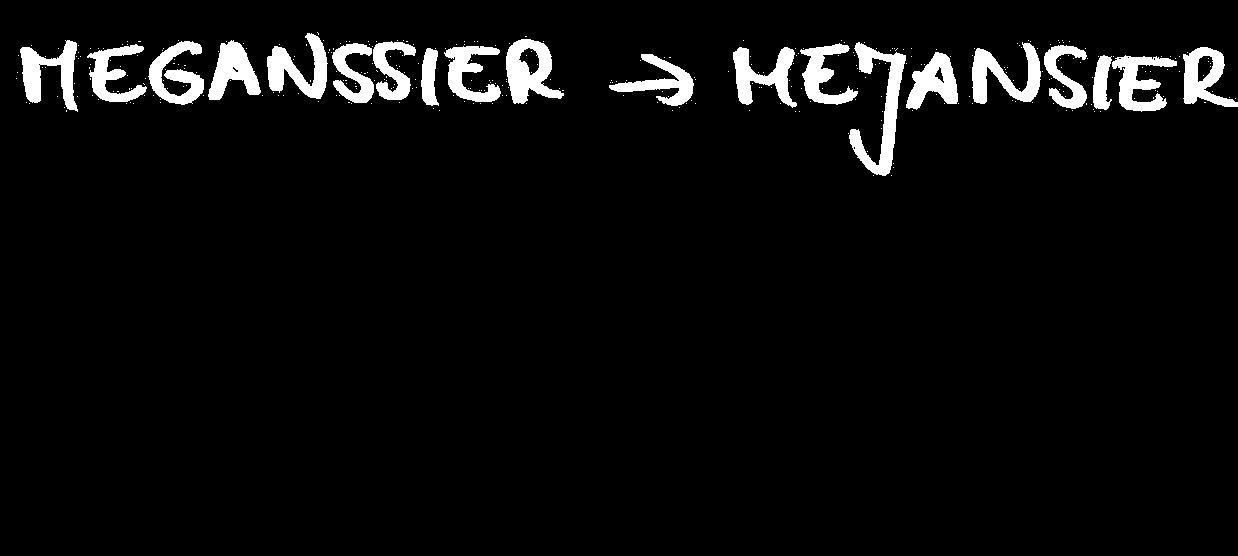 MEGANSSIER → MEJANSIER